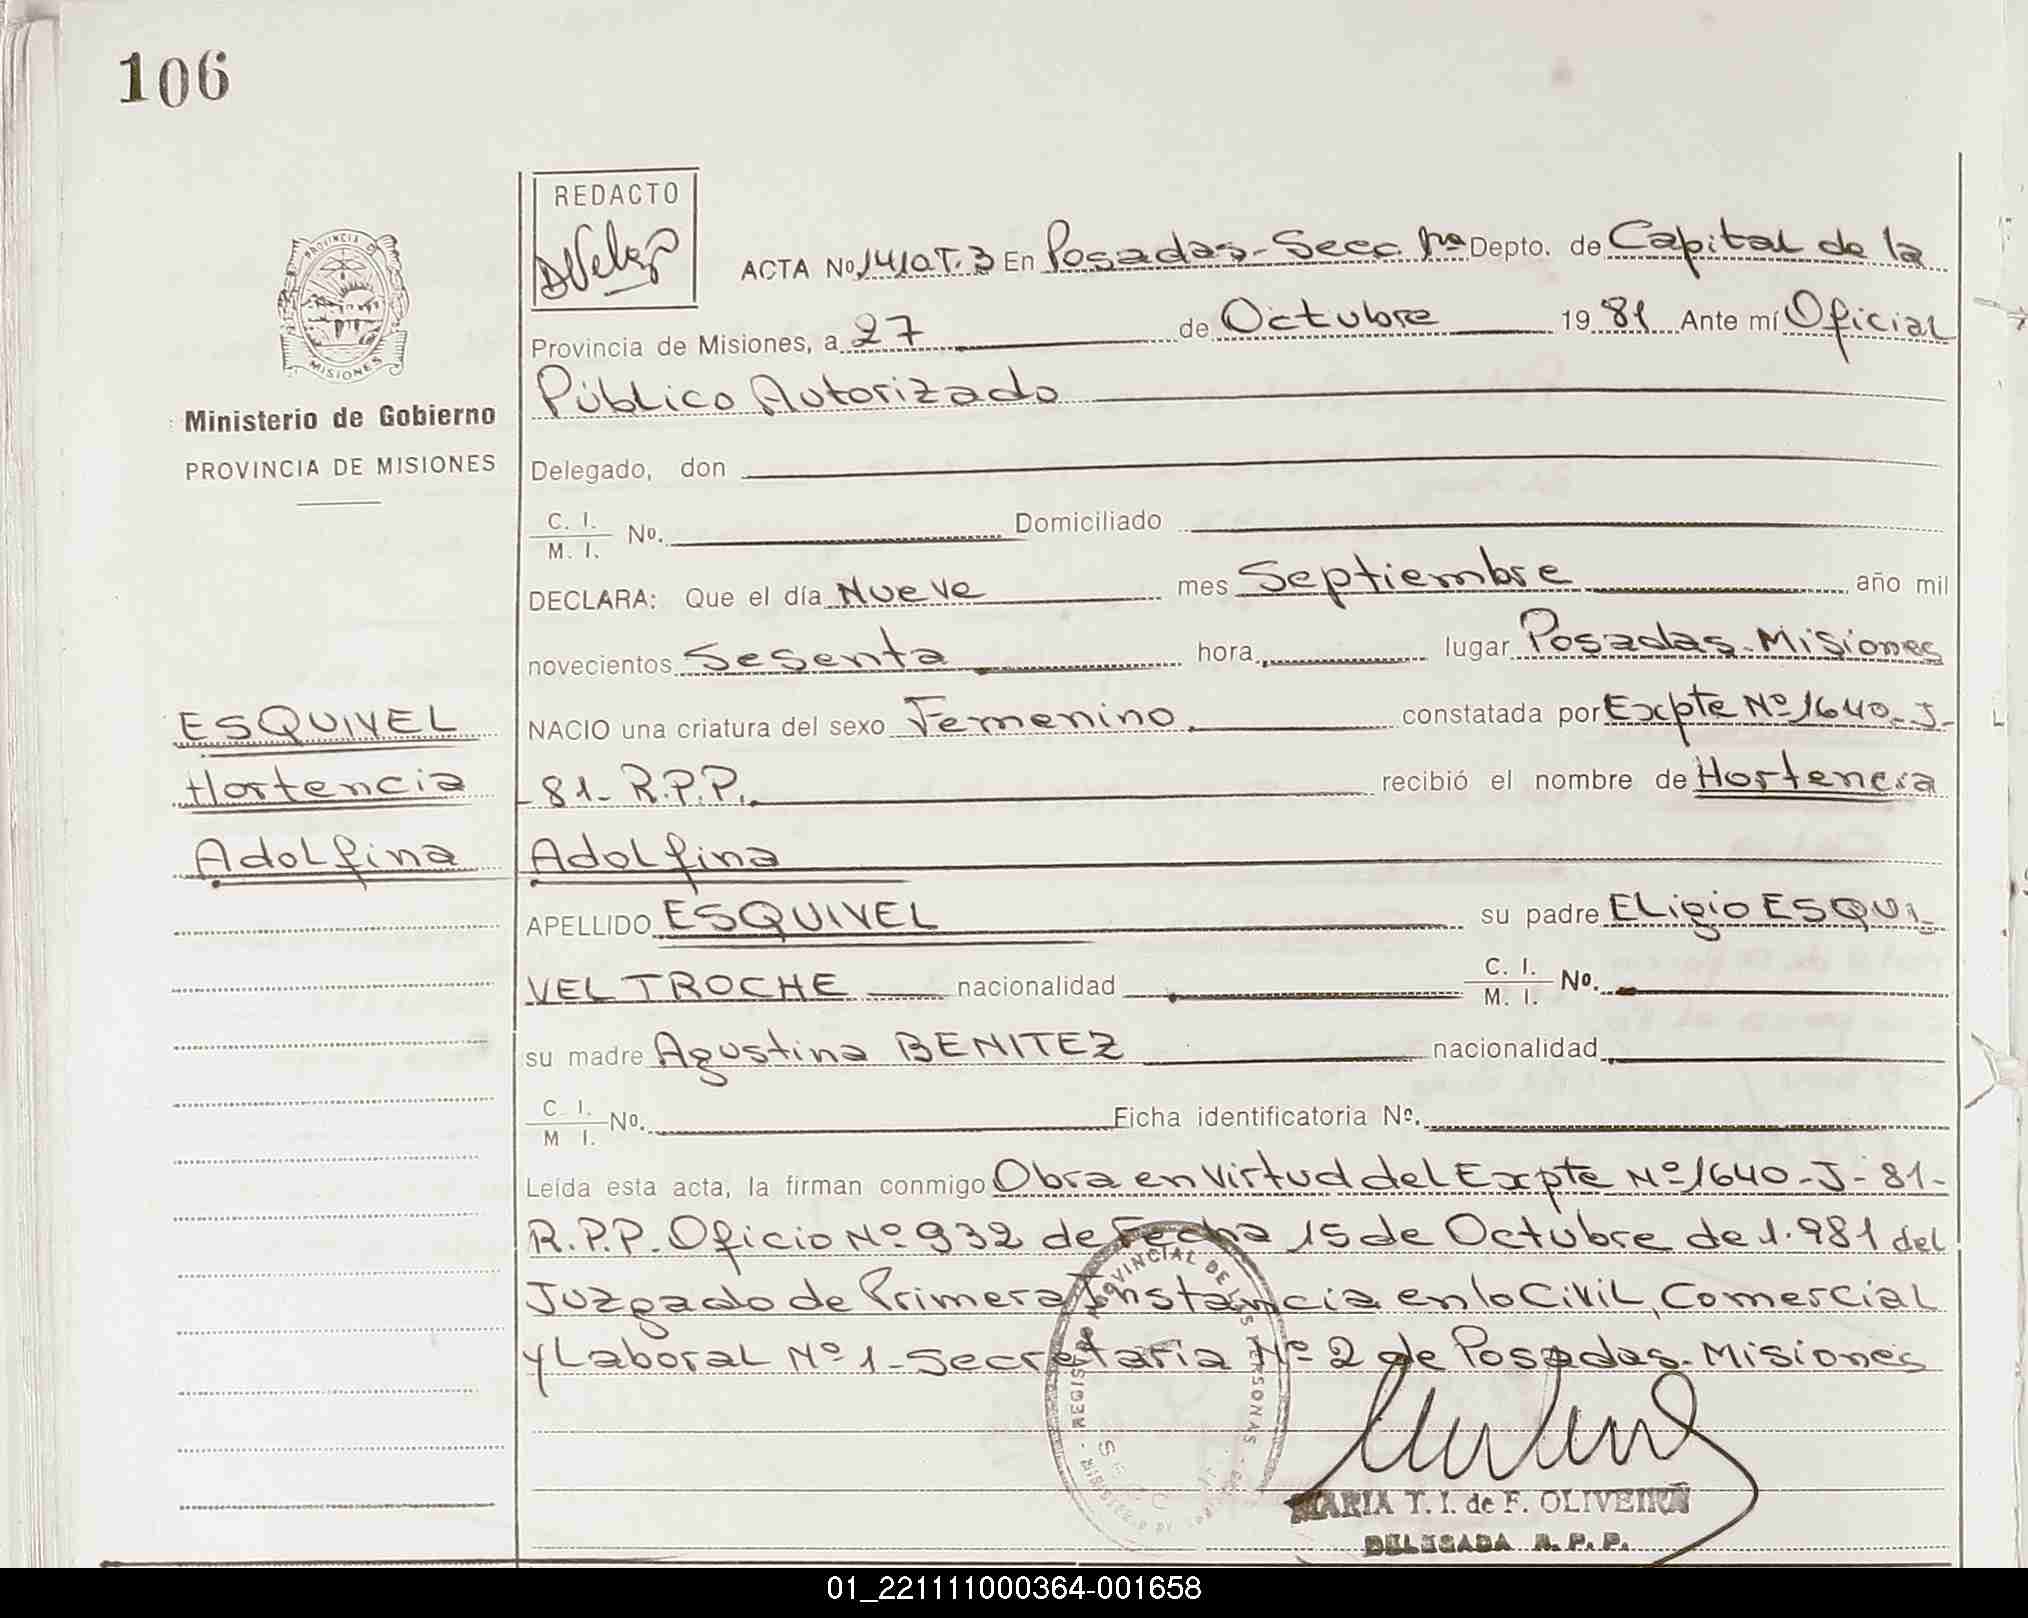 106
REDACTO
ACTA No 1410 T. 3 En Posadas-Secc. 1ra Depto. de Capital de la
PROVINCIA DE
MISIONES
Provincia de Misiones, a 27 de Octubre 19 81 Ante mí Oficial
Público Autorizado
Ministerio de Gobierno
PROVINCIA DE MISIONES
Delegado, don
C. I. No. Domiciliado
M. I.
DECLARA: Que el día Nueve mes Septiembre año mil
novecientos Sesenta hora lugar Posadas-Misiones
ESQUIVEL
NACIO una criatura del sexo Femenino constatada por Expte Nº 1640-J-
Hortencia
81- R.P.P. recibió el nombre de Hortencia
Adolfina
Adolfina
APELLIDO ESQUIVEL su padre Eligio ESQUI-
VEL TROCHE nacionalidad C. I. No.
M. I.
su madre Agustina BENITEZ nacionalidad
C. I. No. Ficha identificatoria Nº.
M I.
Leída esta acta, la firman conmigo Obra en virtud del Expte Nº 1640-J-81-
R.P.P. Oficio Nº 932 de Fecha 15 de Octubre de 1.981 del
Juzgado de Primera Instancia en lo Civil, Comercial
y Laboral Nº 1-Secretaria Nº 2 de Posadas-Misiones
REGISTRO PROVINCIAL DE LAS PERSONAS
MARIA T. I. de F. OLIVEIRA
DELEGADA R. P. P.
01_221111000364-001658